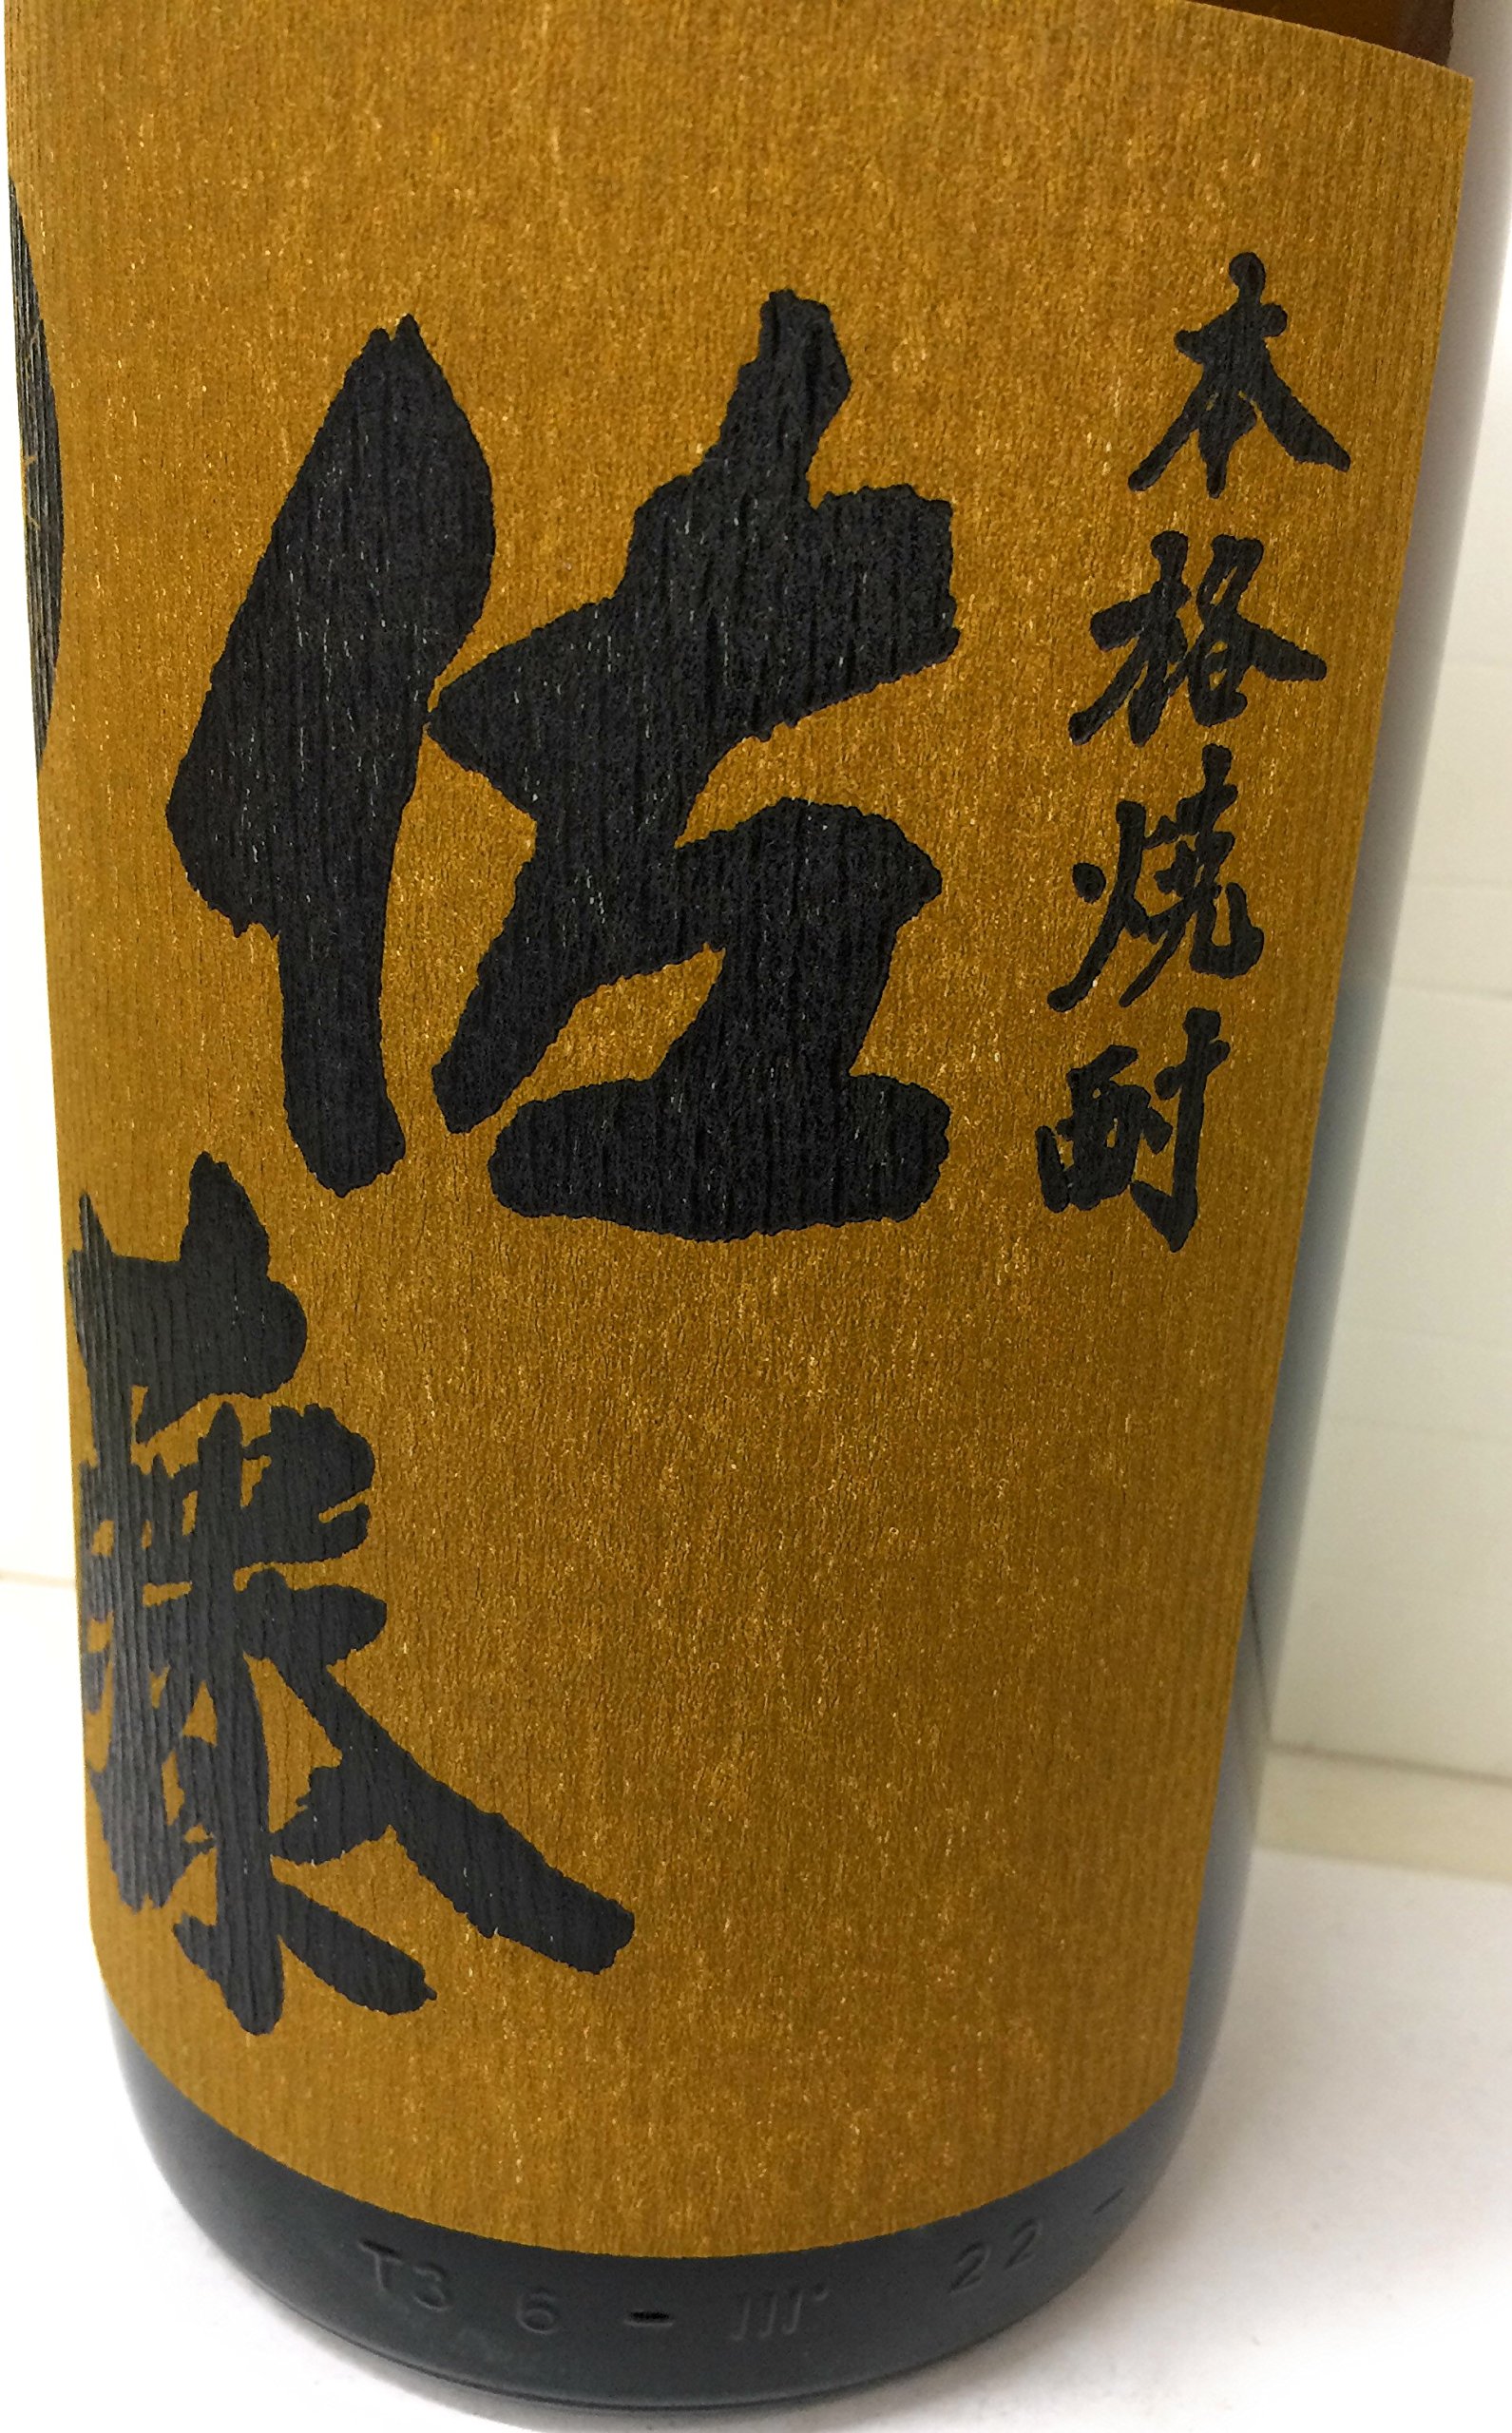 本格焼酎
佐藤
T3 6 - 111' 22 -